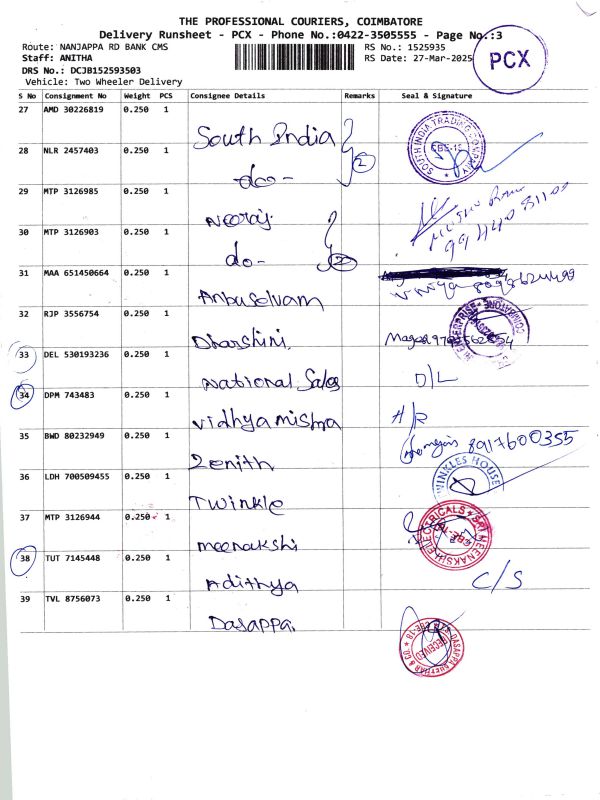 THE PROFESSIONAL COURIERS, COIMBATORE
Delivery Runsheet - PCX - Phone No.:0422-3505555 - Page No.:3
Route: NANJAPPA RD BANK CMS
RS No.: 1525935
Staff: ANITHA
RS Date: 27-Mar-2025
PCX
DRS No.: DCJB152593503
Vehicle: Two Wheeler Delivery
S No Consignment No Weight PCS Consignee Details Remarks Seal & Signature
27 AMD 30226819 0.250 1
South India
SOUTH INDIA TRADING COMPANY
28 NLR 2457403 0.250 1
2
do-
29 MTP 3126985 0.250 1
Neeraj
30 MTP 3126903 0.250 1
do-
2
31 MAA 651450664 0.250 1
Anbuselvam
32 RJP 3556754 0.250 1
Dharshini
33 DEL 530193236 0.250 1
National Sales
D/L
34 DPM 743483 0.250 1
Vidhya mishra
A/R
35 BWD 80232949 0.250 1
8917600355
Zenith
36 LDH 700509455 0.250 1
TWINKLES HOUSE
Twinkle
37 MTP 3126944 0.250 1
SRI MEENAKSHI ELECTRICALS
meenakshi
38 TUT 7145448 0.250 1
Adithya
C/S
39 TVL 8756073 0.250 1
Dasappa.
RECEIVED